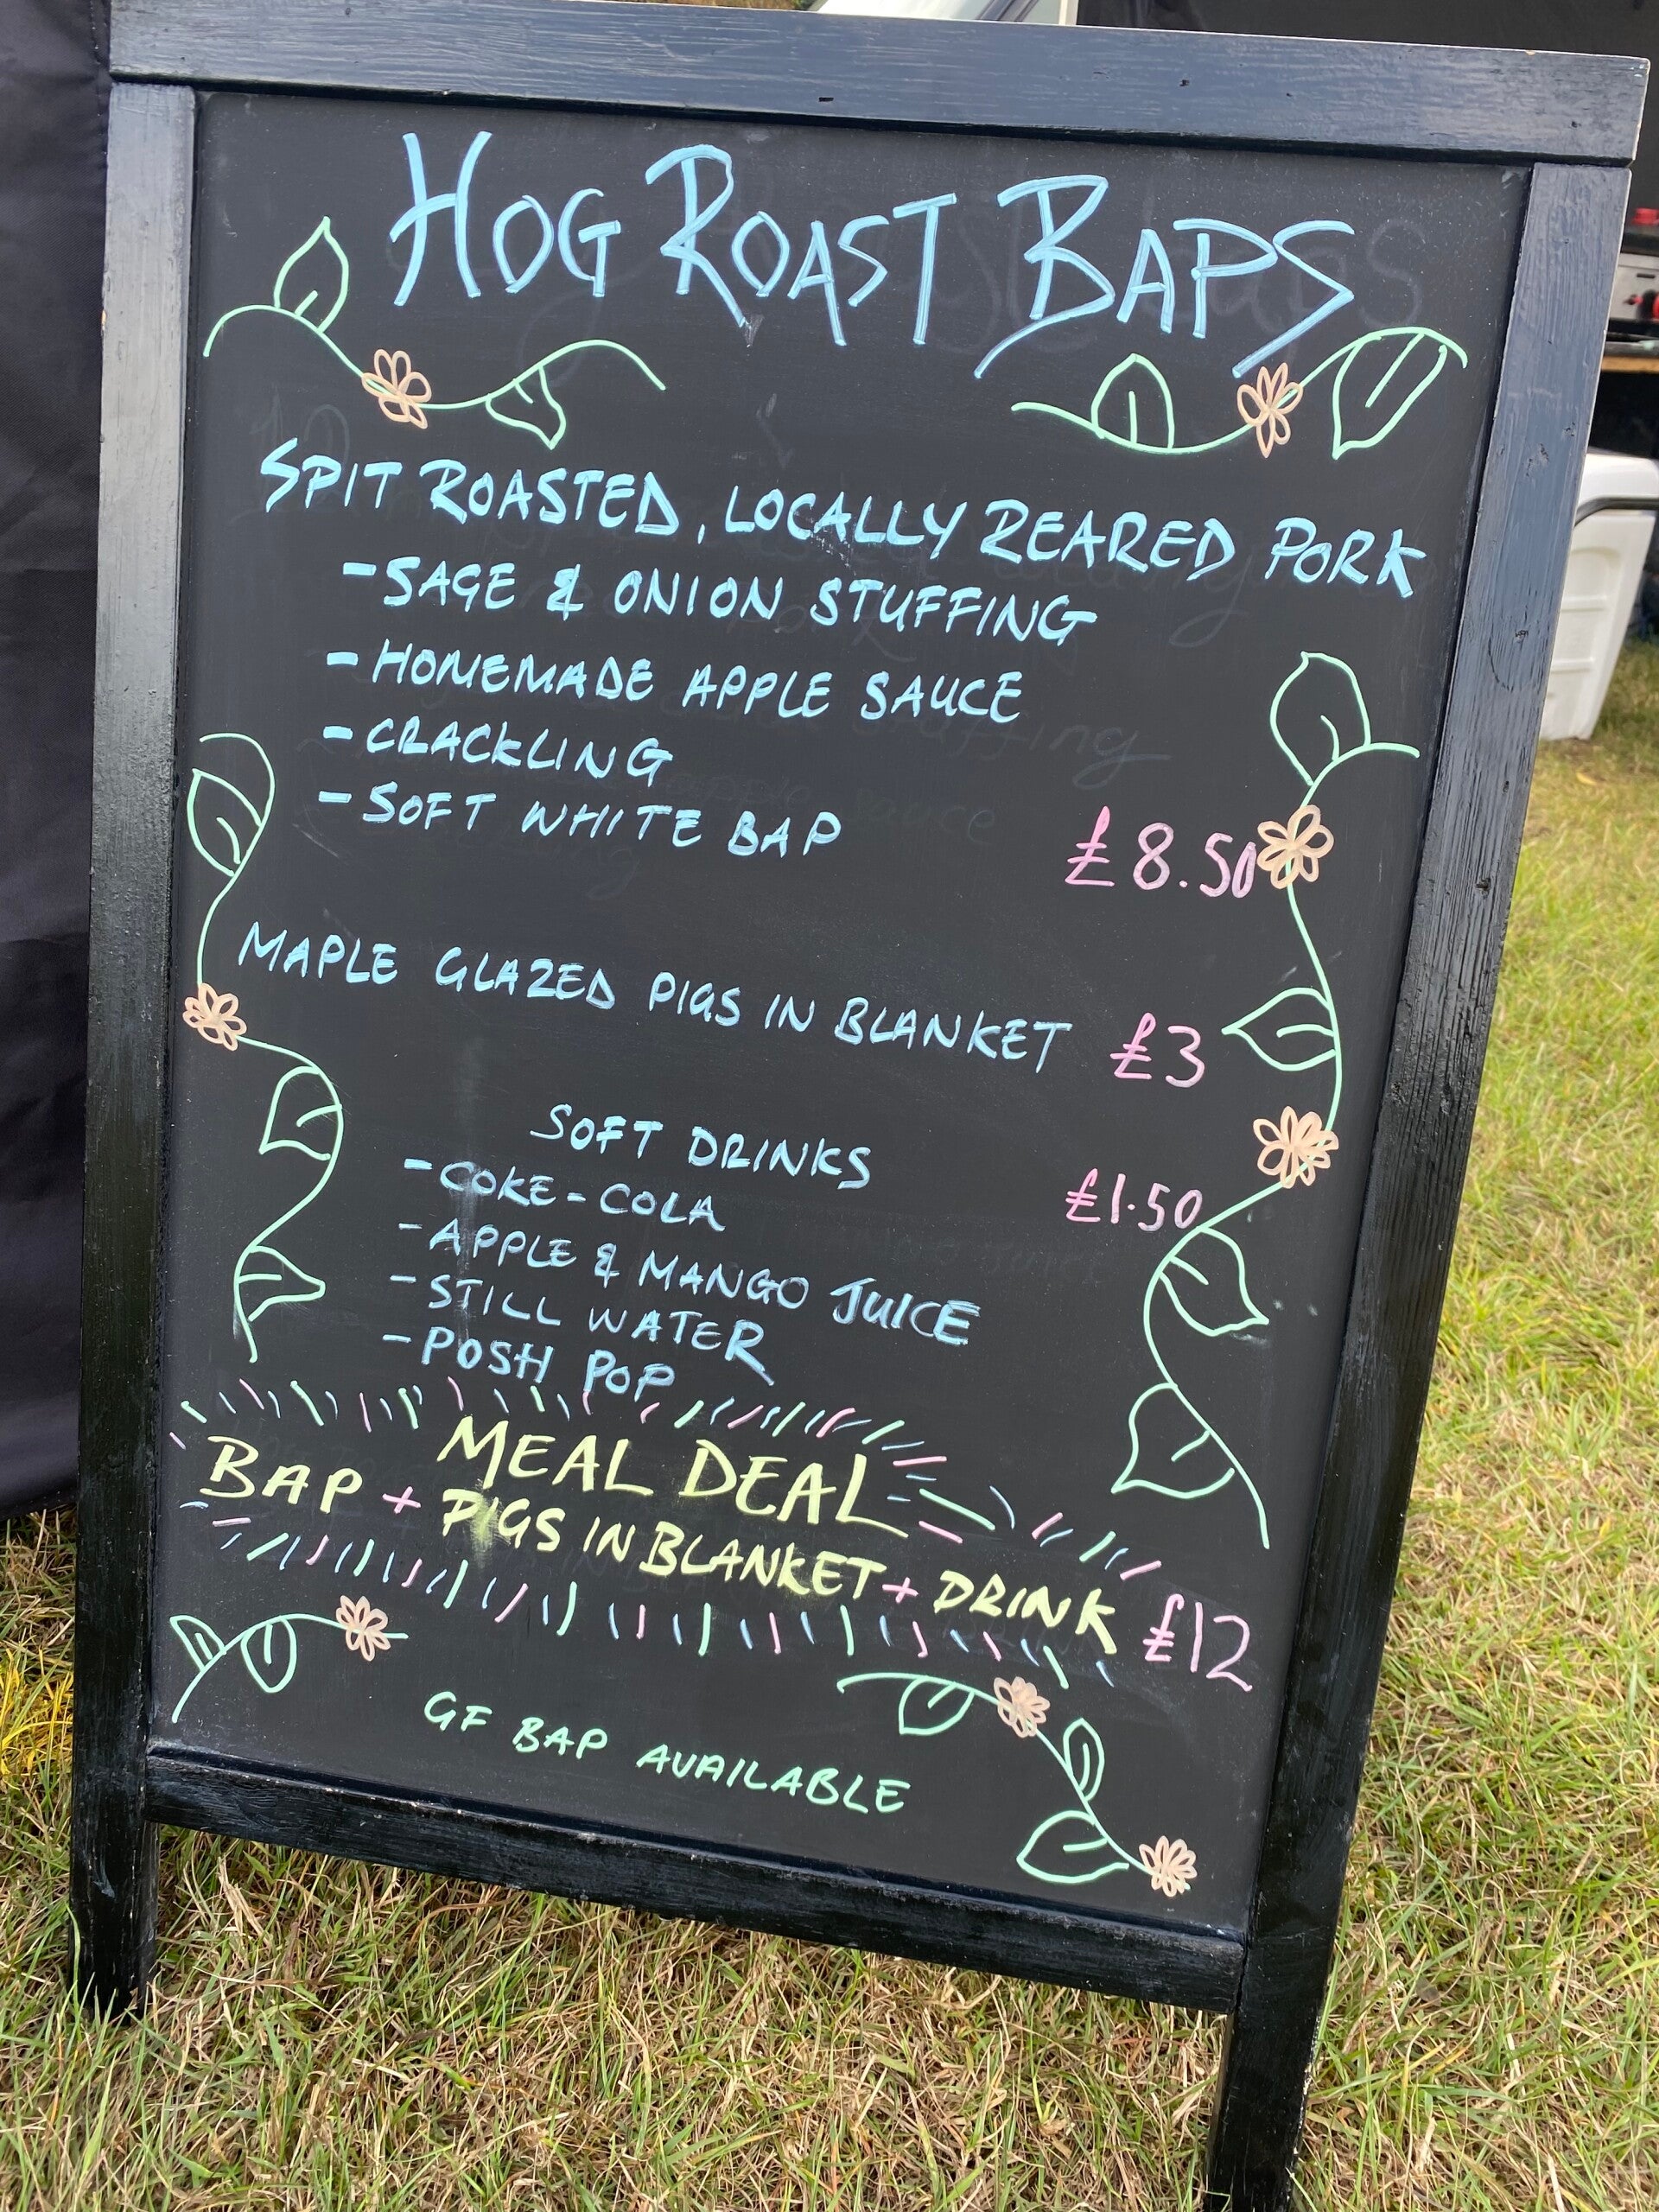 HOG ROAST BAPS
SPIT ROASTED, LOCALLY REARED PORK
- SAGE & ONION STUFFING
- HOMEMADE APPLE SAUCE
- CRACKLING
- SOFT WHITE BAP £8.50
MAPLE GLAZED PIGS IN BLANKET £3
SOFT DRINKS £1.50
- COKE-COLA
- APPLE & MANGO JUICE
- STILL WATER
- POSH POP
MEAL DEAL
BAP + PIGS IN BLANKET + DRINK £12
GF BAP AVAILABLE